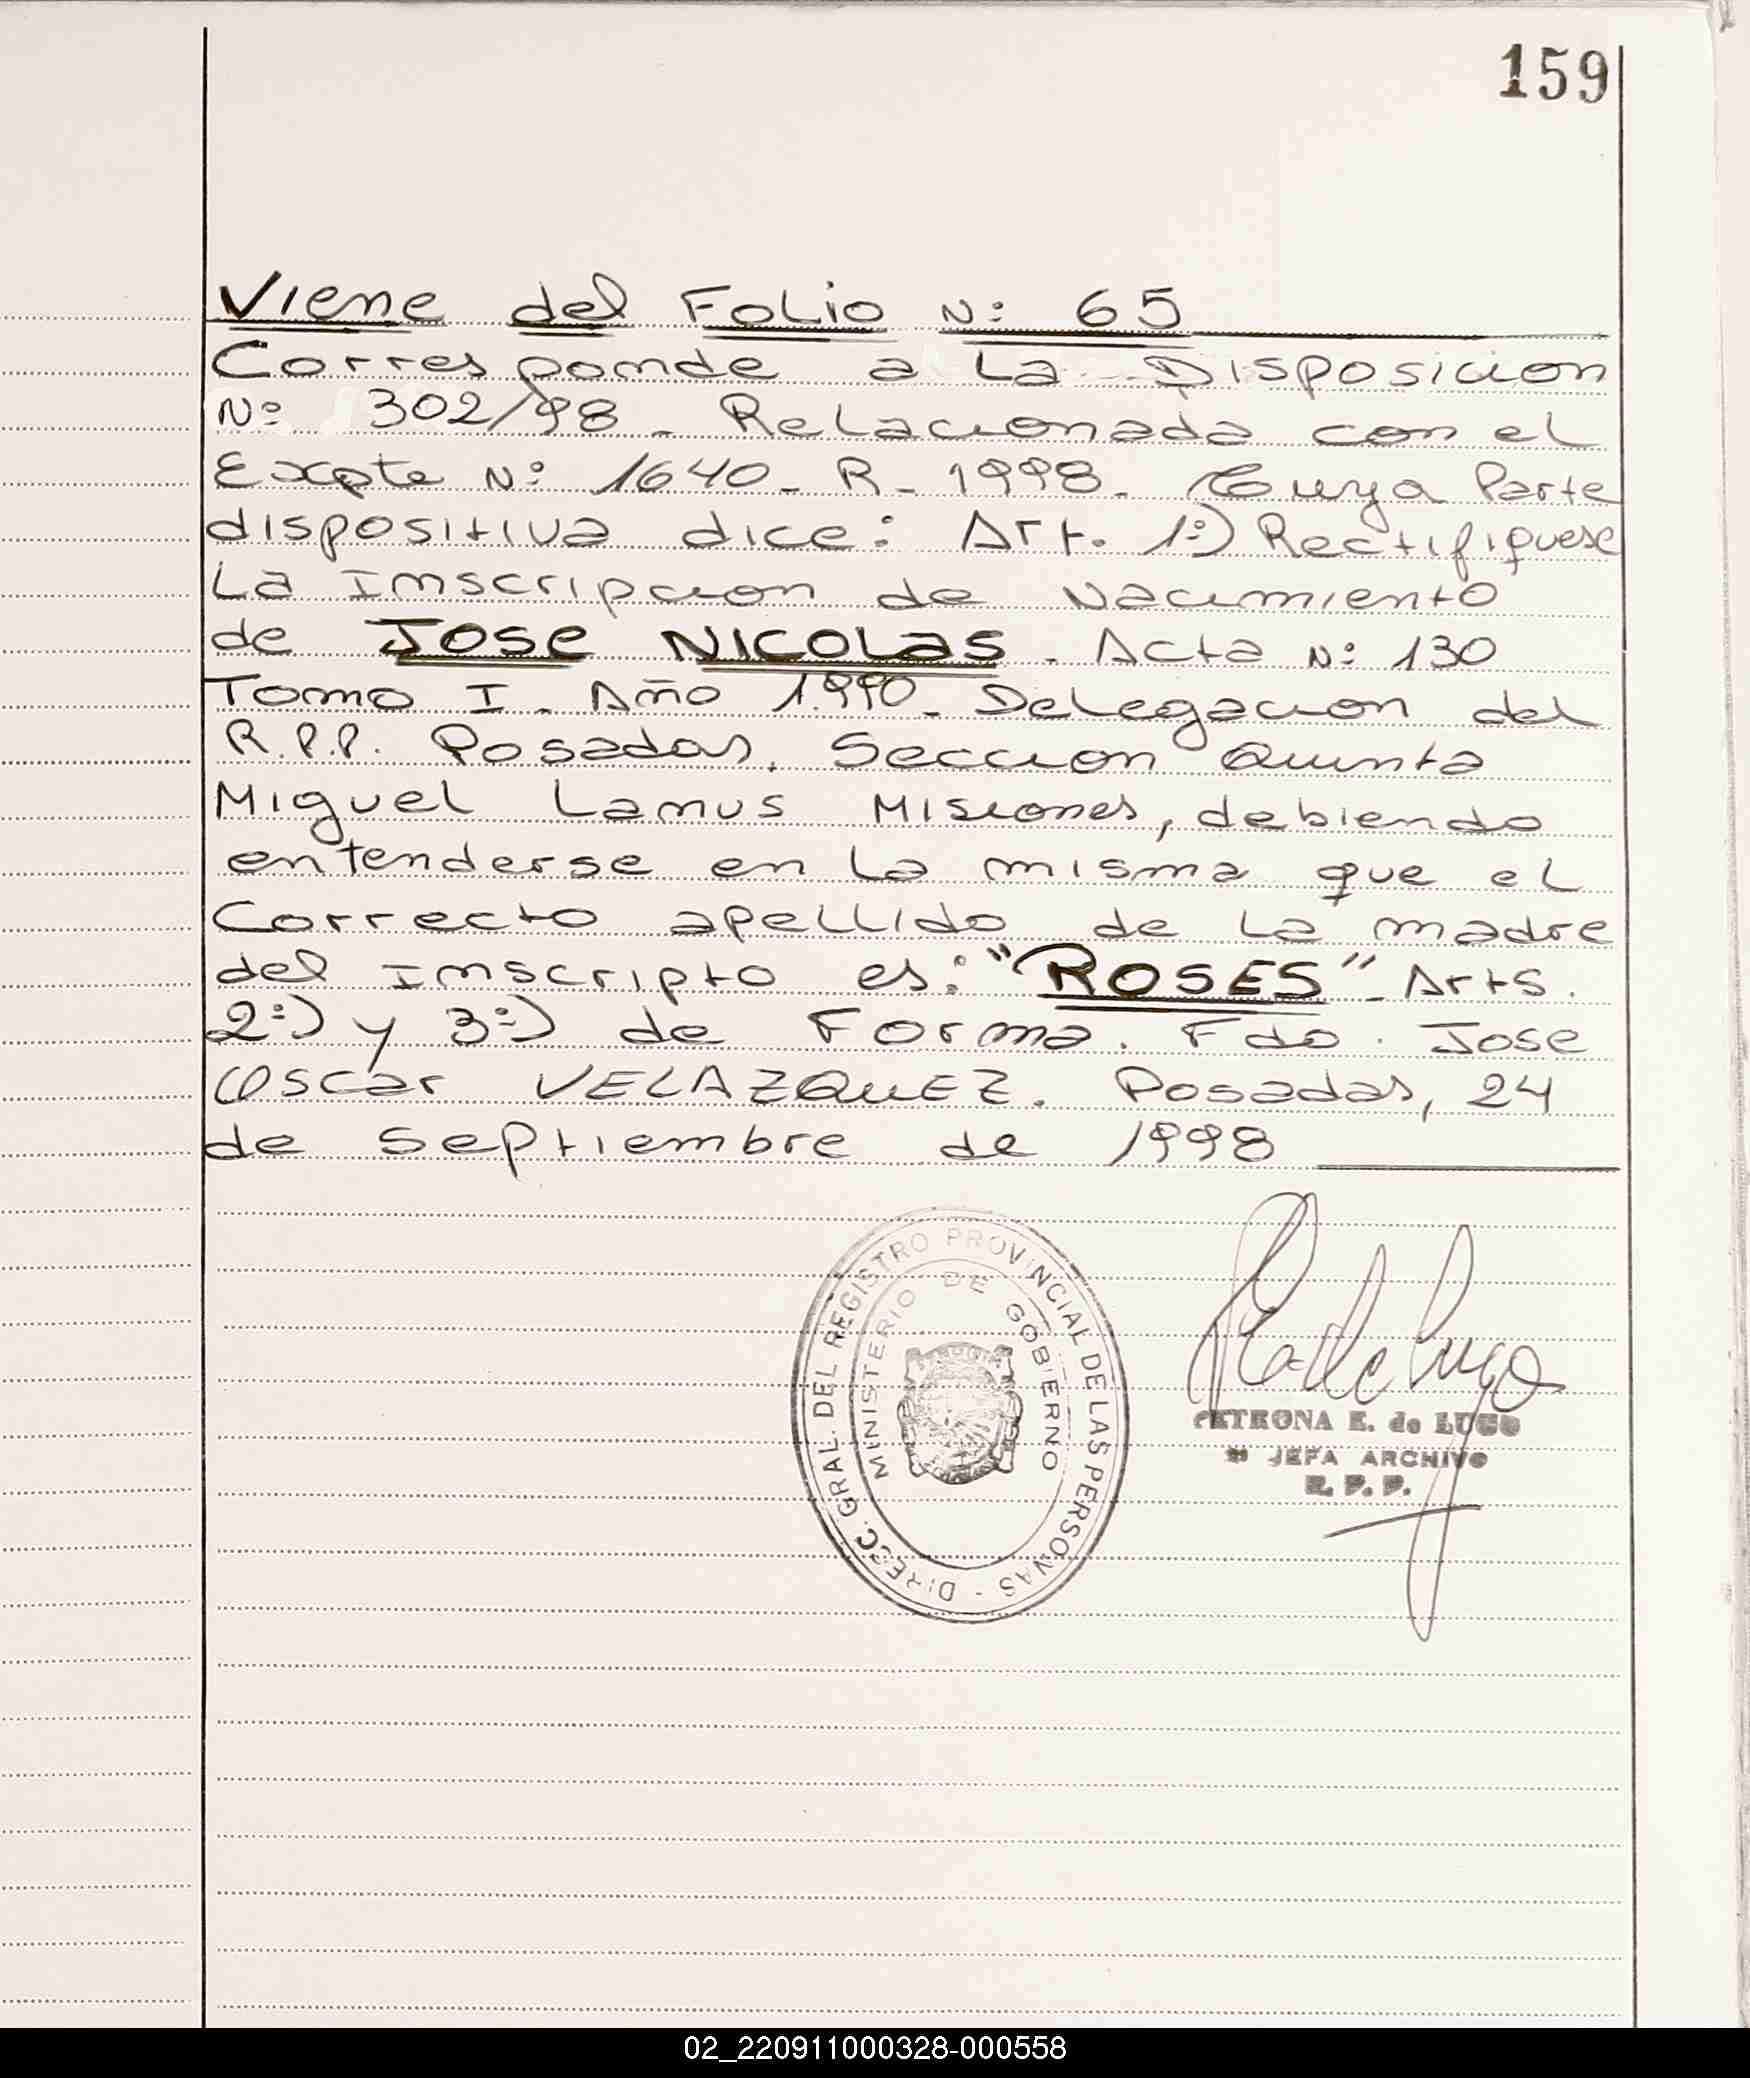 159
Viene del Folio N: 65
Corresponde a La Disposicion
Nº 302/98. Relacionada con el
Expte Nº 1640 - R - 1998. Cuya Parte
dispositiva dice: Art. 1º) Rectifiquese
La Inscripcion de Nacimiento
de JOSE NICOLAS. Acta Nº 130
Tomo I. Año 1.990. Delegacion del
R.P.P. Posadas. Seccion Quinta
Miguel Lanus Misiones, debiendo
entenderse en La misma que el
Correcto apellido de La madre
del Inscripto es: "ROSES". Arts.
2º) y 3º) de Forma. Fdo. Jose
Oscar VELAZQUEZ. Posadas, 24
de Septiembre de 1998
DIRECC. GRAL. DEL REGISTRO PROVINCIAL DE LAS PERSONAS -
MINISTERIO DE GOBIERNO
PETRONA E. de LUGO
JEFA ARCHIVO
R. P. P.
02_220911000328-000558